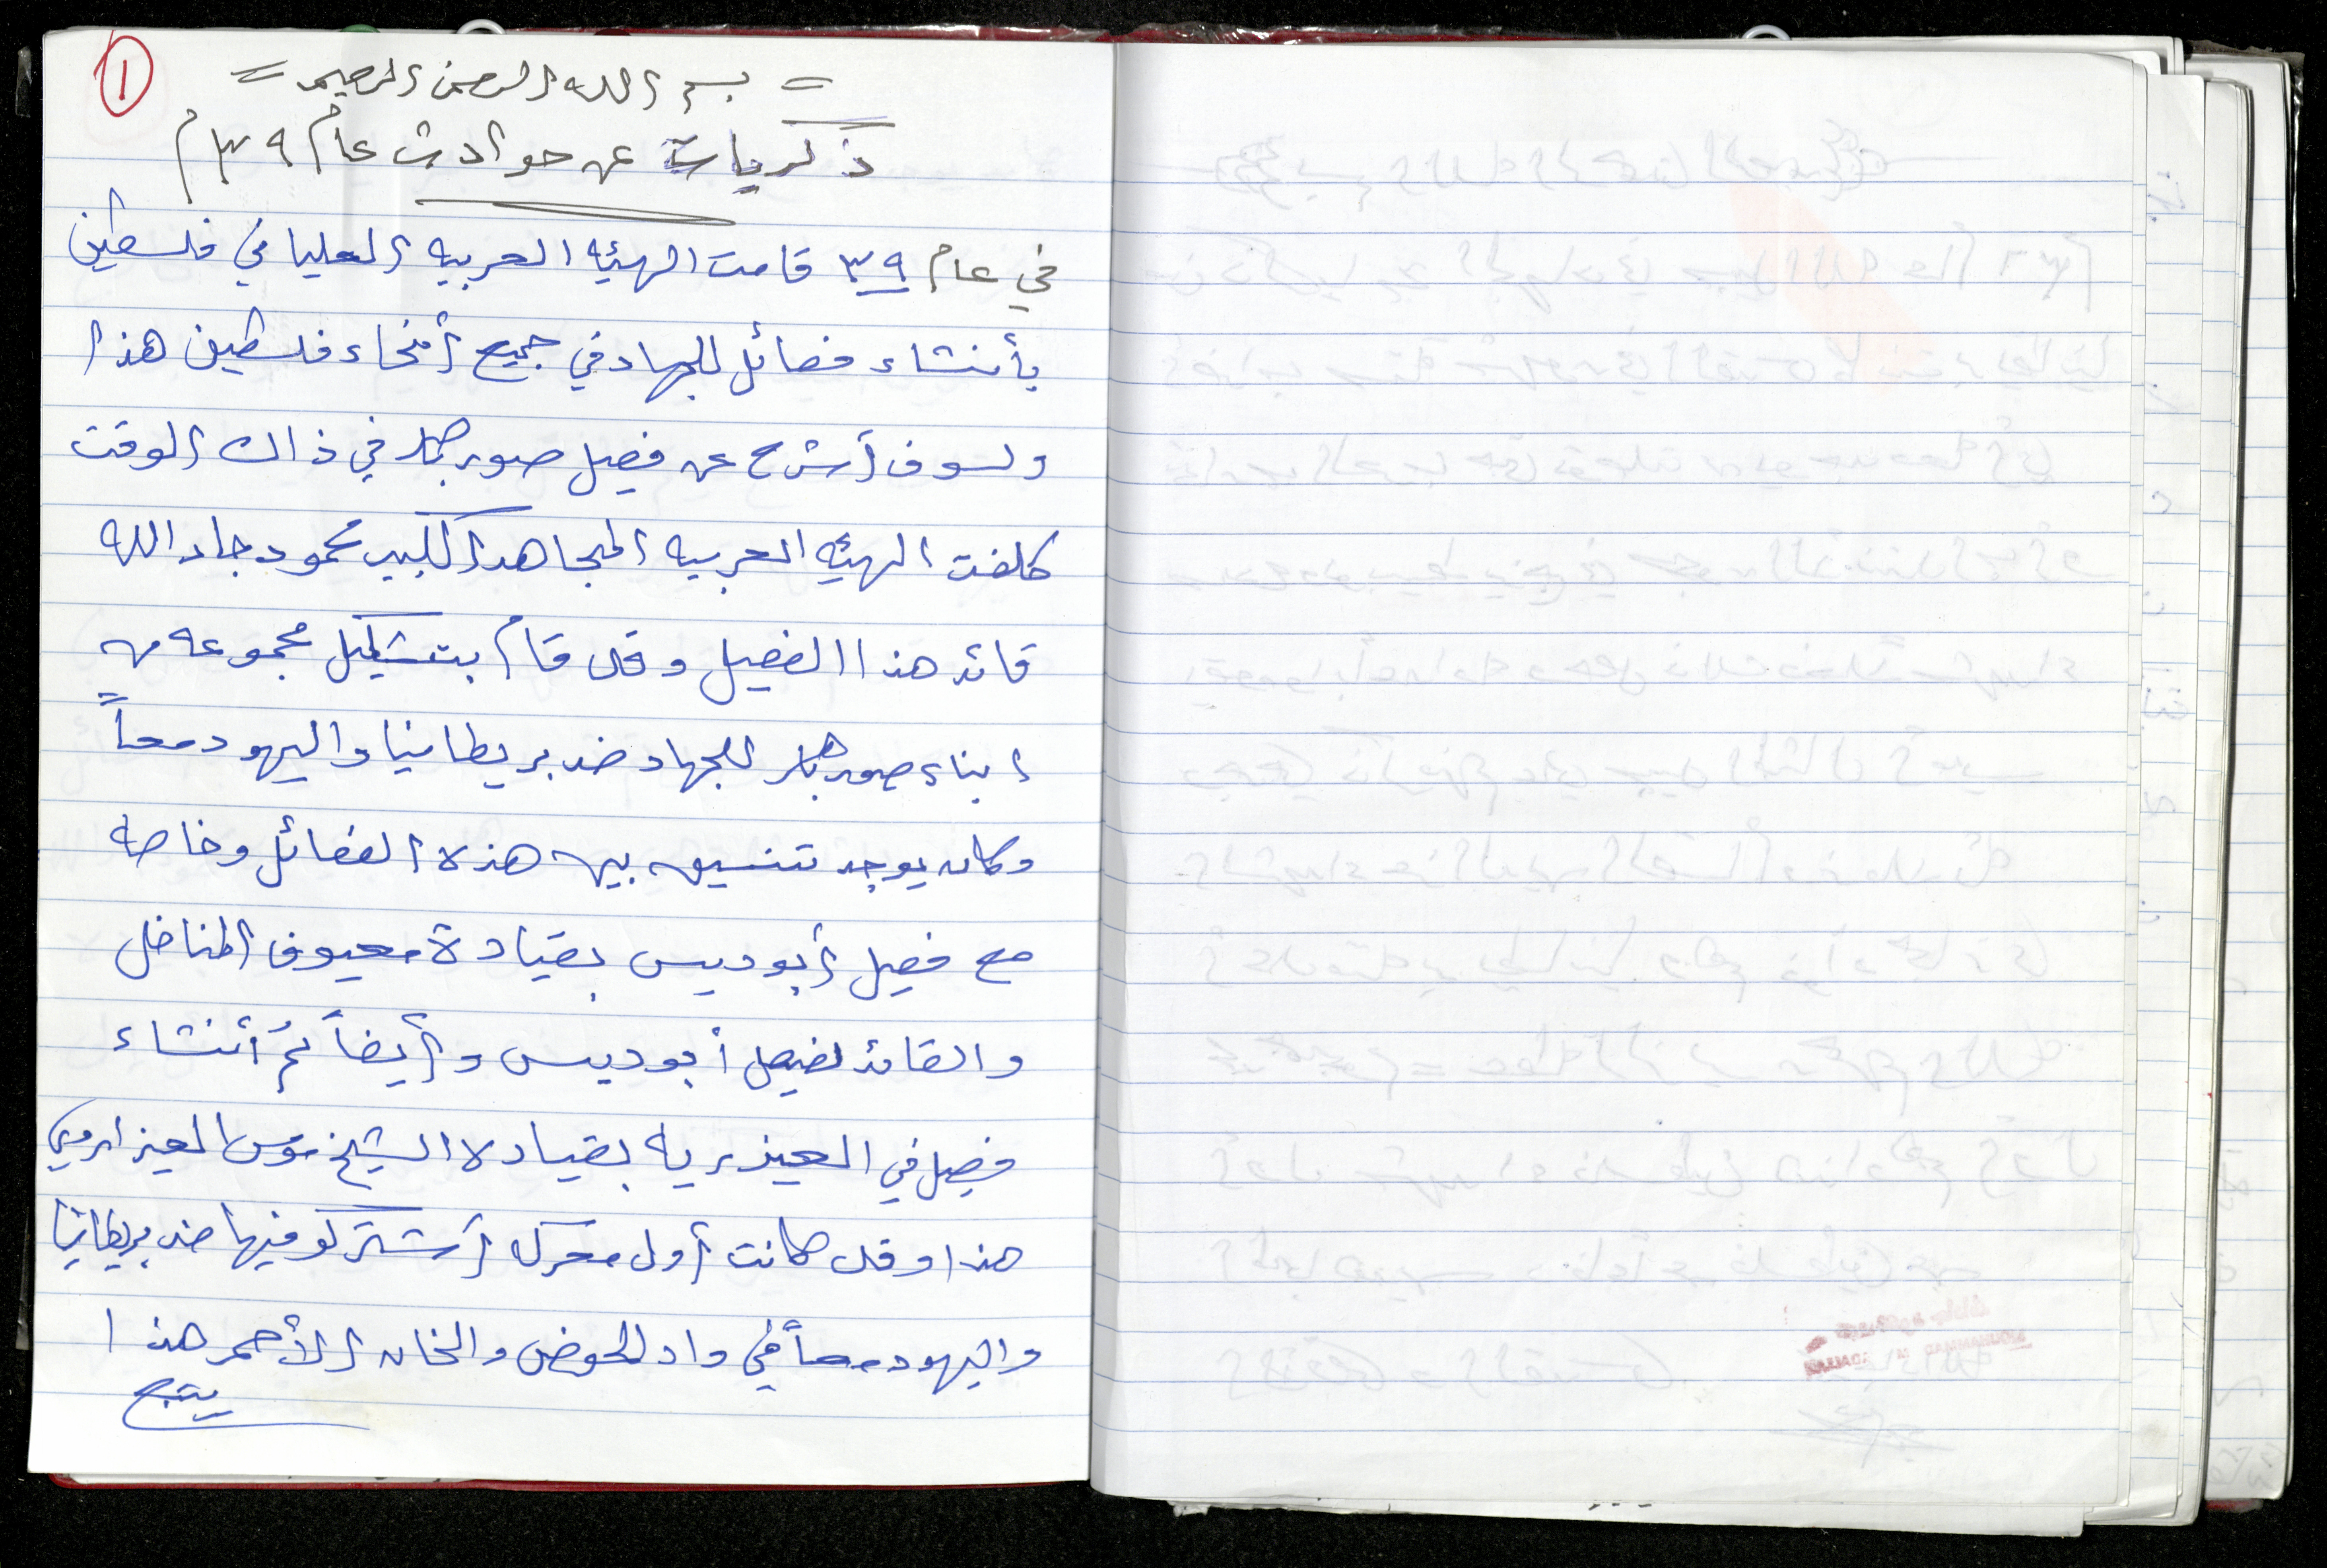 ١
= بسم الله الرحمن الرحيم =
ذكريات عن حوادث عام ٣٩م
في عام ٣٩ قامت الهيئه العربيه العليا في فلسطين
بأنشاء فصائل للجهاد في جميع أنحاء فلسطين هذا
ولسوف أشرح عن فصيل صور باهر في ذاك الوقت
كلفت الهيئه العربيه المجاهد الكبير محمود جاد الله
قائد هذا الفصيل وقد قام بتشكيل مجموعه من
ابناء صور باهر للجهاد ضد بريطانيا واليهود معاً
وكان يوجد تنسيق بين هذه الفصائل وخاصه
مع فصيل أبو ديس بقيادة معيوف المناضل
والقائد لفصيل أبو ديس وأيضاً تم أنشاء
فصيل في العيزريه بقياده الشيخ موسى العيزراوي
هذا وقد كانت أول معركه أشتركو فيها ضد بريطانيا
واليهود معاً في واد الحوض والخان الأحمر هذا
يتبع